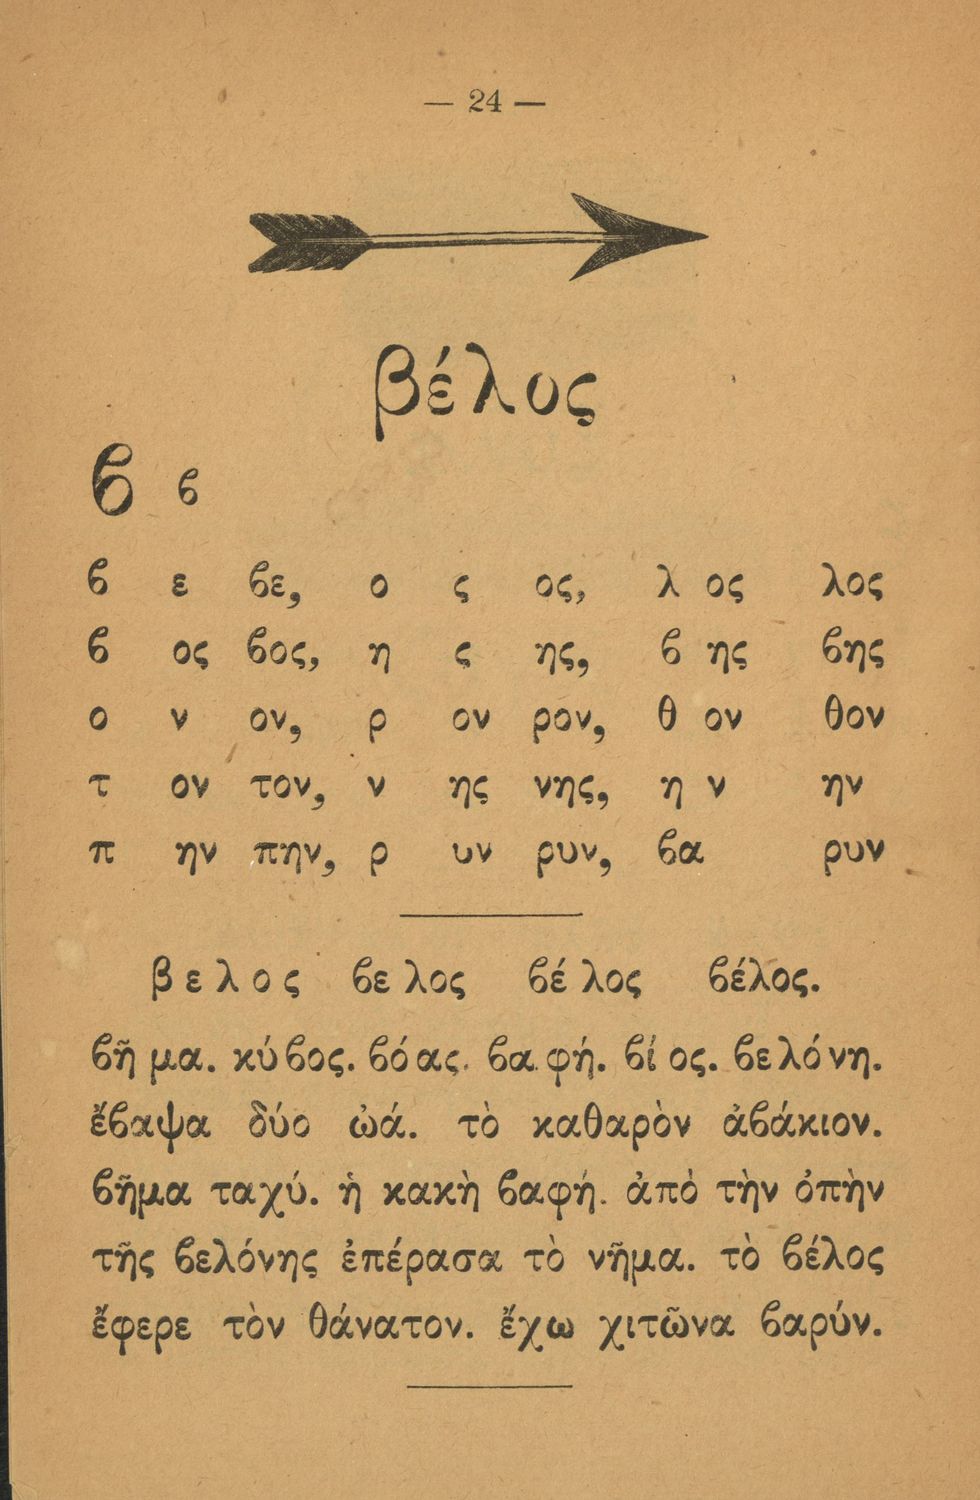 — 24 —
βέλος
ϐ ϐ
ϐ ε ϐε, ο ς ος, λ ος λος
ϐ ος ϐος, η ς ης, ϐ ης ϐης
ο ν ον, ρ ον ρον, θ ον θον
τ ον τον, ν ης νης, η ν ην
π ην πην, ρ υν ρυν, ϐα ρυν
β ε λ ο ς ϐε λος ϐέ λος ϐέλος.
ϐῆ μα. κύ ϐος. ϐό ας. ϐα.φή. ϐί ος. ϐε λό νη.
ἔϐαψα δύο ὠά. τὸ καθαρὸν ἀϐάκιον.
ϐῆμα ταχύ. ἡ κακὴ ϐαφή. ἀπὸ τὴν ὀπὴν
τῆς ϐελόνης ἐπέρασα τὸ νῆμα. τὸ ϐέλος
ἔφερε τὸν θάνατον. ἔχω χιτῶνα ϐαρύν.